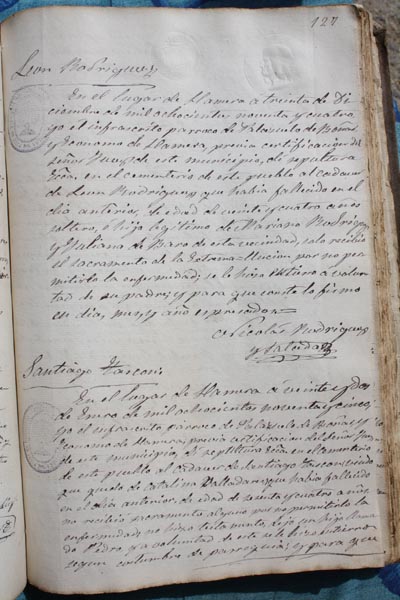 127
Leon Rodriguez
En el lugar de Llamera a treinta de Di
ciembre de mil ochocientos noventa y cuatro,
yo el infrascrito parroco de Palazuelo de Boñar
y Economo de Llamera, previa certificacion del
señor Juez de este municipio, di sepultura
Ecca. en el cementerio de este pueblo al cadaver
de Leon Rodriguez que habia fallecido en el
dia anterior, de edad de veinte y cuatro años
soltero, é hijo legitimo de Mariano Rodriguez
y Juliana de Baro de esta vecindad, solo recibio
el sacramento de la Extrema-Uncion por no per
mitirlo la enfermedad; se le hizo entierro a volun
tad de su padre; y para que conste lo firmo
en dia, mes y año expresados=
Nicolas Rodriguez
y
Santiago Tascon
En el lugar de Llamera a veinte y dos
de Enero de mil ochocientos noventa y cinco,
yo el infrascrito parroco de Palazuelo de Boñar y
Economo de Llamera, previa certificacion del señor Juez
de este municipio, di sepultura Ecca. en el cementerio
de este pueblo al cadaver de Santiago Tascon viudo
que quedo de Catalina Valladares que habia fallecido
en el dia anterior de edad de setenta y cuatro años
no recibio sacramento alguno por no permitirlo la
enfermedad, no hizo testamento, dejo un hijo llama
do Pedro y a voluntad de este se le hizo entierro
segun costumbre de parroquia; y para que